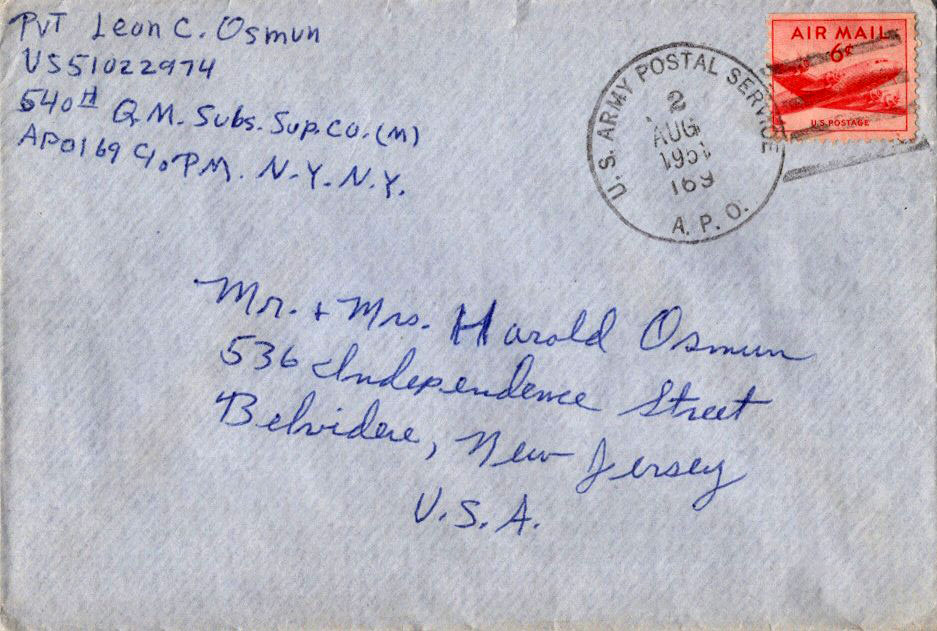 Pvt Leon C. Osmun
US51022974
540th Q.M. Subs. Sup. Co. (M)
APO169 c/o P.M. N.Y. N.Y.
U. S. ARMY POSTAL SERVICE
2
AUG
1951
169
A. P. O.
AIR MAIL
6¢
U.S. POSTAGE
Mr. + Mrs. Harold Osmun
536 Independence Street
Belvidere, New Jersey
U.S.A.